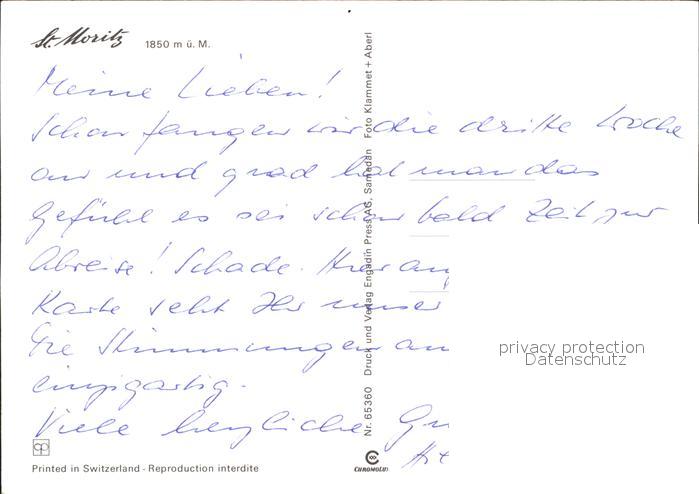 St. Moritz 1850 m ü. M.
Meine Lieben!
Schon fangen wir die dritte Woche
an und grad hat man das
Gefühl es sei schon bald Zeit zur
Abreise! Schade. Hier auf
Karte seht Ihr unser
Die Stimmungen
einzigartig.
Viele herzliche
Printed in Switzerland - Reproduction interdite
Nr. 65360 Druck und Verlag Engadin Press AG, Samedan Foto Klammet + Aberl
CHROMOLUX
privacy protection
Datenschutz